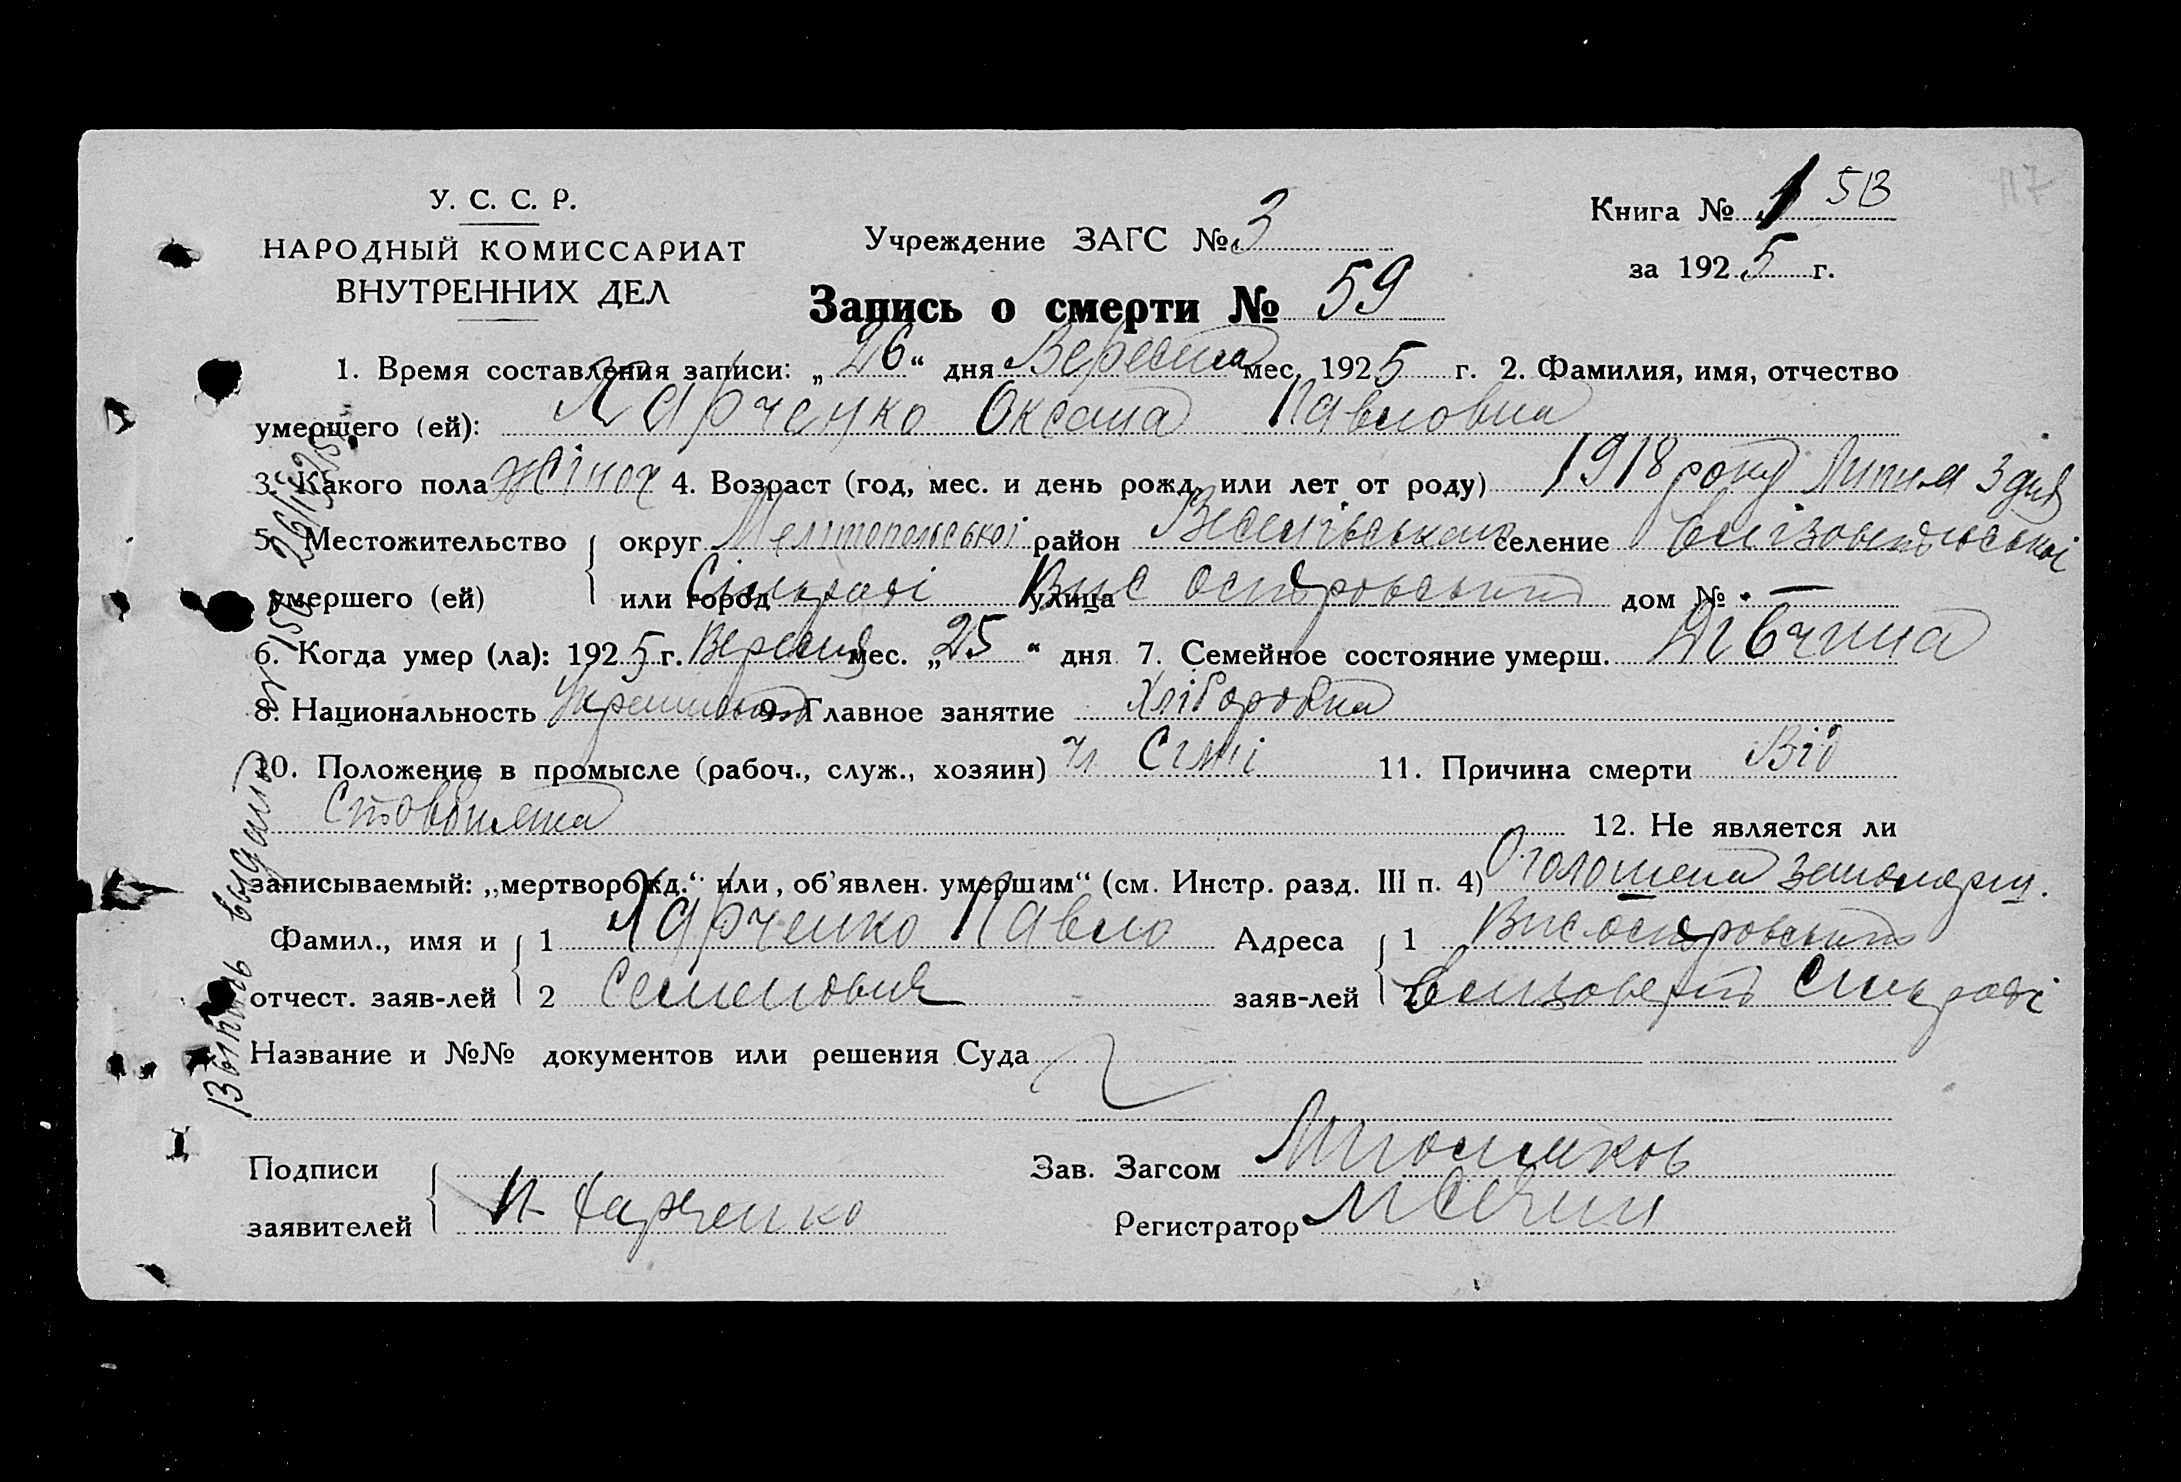 У. С. С. Р.
НАРОДНЫЙ КОМИССАРИАТ
ВНУТРЕННИХ ДЕЛ
Учреждение ЗАГС № 3
Книга № 1 5В
за 1925 г.
117
Запись о смерти № 59
1. Время составления записи: „26“ дня Вересня мес. 1925 г. 2. Фамилия, имя, отчество
умершего (ей): Харченко Оксана Павловна
3. Какого пола жіноч 4. Возраст (год, мес. и день рожд. или лет от роду) 1918 року Липня 3 дня
5. Местожительство округ Мелітопольської район Веселівського селение Єлізоветовської
умершего (ей) или город Сільради улица Вис Островський дом № —
6. Когда умер (ла): 1925 г. Вересня мес. „25“ дня 7. Семейное состояние умерш. Дівчина
8. Национальность Українська 9. Главное занятие Хліборобка
10. Положение в промысле (рабоч., служ., хозяин) чл Сімї 11. Причина смерти Від
12. Не является ли
записываемый: „мертворожд.“ или „об'явлен. умершим“ (см. Инстр. разд. III п. 4) Оголошена
Фамил., имя и 1 Харченко Павло Адреса 1 Вис Островський
отчест. заяв-лей 2 Семенович заяв-лей 2 Єлизоверт Сільради
Название и №№ документов или решения Суда
Подписи Зав. Загсом
заявителей П Харченко Регистратор
Выпись выдана